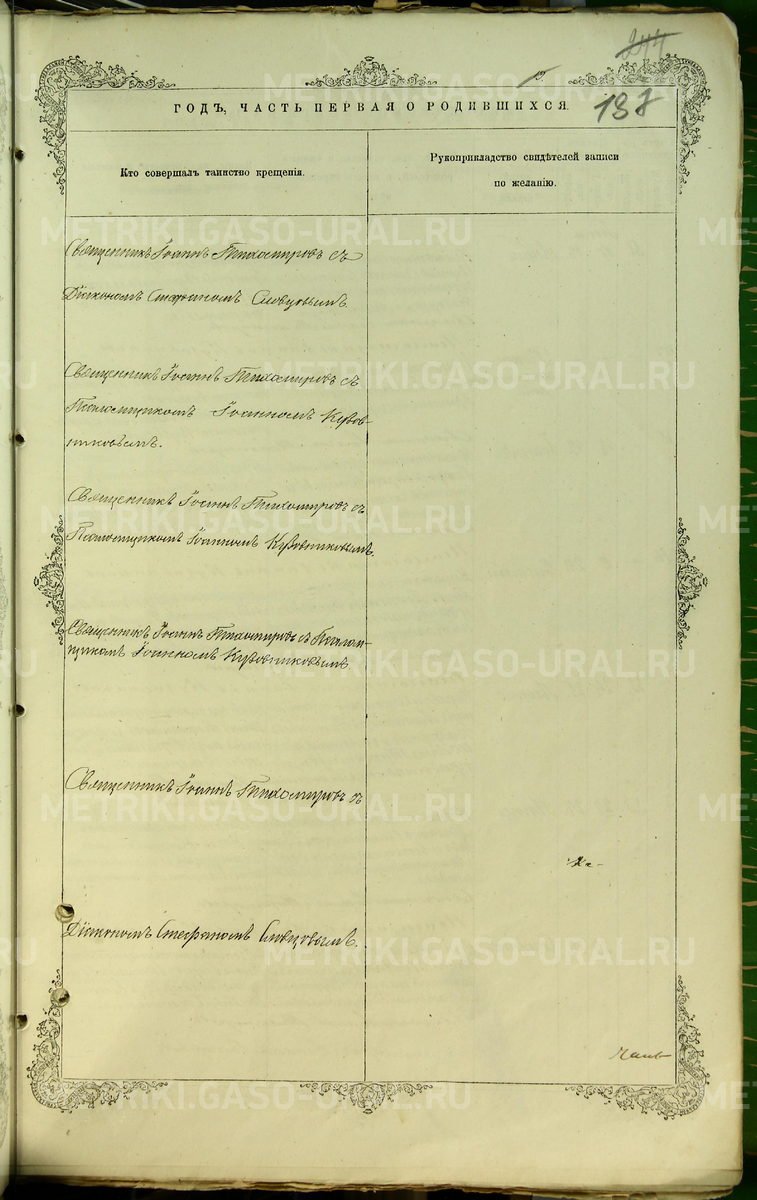 244
ГОДЪ, ЧАСТЬ ПЕРВАЯ О РОДИВШИХСЯ.
137
Кто совершалъ таинство крещенія.
Рукоприкладство свидѣтелей записи
по желанію.
Священникъ Іоаннъ Тихомировъ съ
Діакономъ Стефаномъ Словцовымъ.
Священникъ Іоаннъ Тихомировъ съ
Псаломщикомъ Іоанномъ Кузов-
никовымъ.
Священникъ Іоаннъ Тихомировъ съ
Псаломщикомъ Іоанномъ Кузовниковымъ.
Священникъ Іоаннъ Тихомировъ съ Псалом-
щикомъ Іоанномъ Кузовниковымъ
Священникъ Іоаннъ Тихомировъ съ
Діакономъ Стефаномъ Словцовымъ.
METRIKI.GASO-URAL.RU